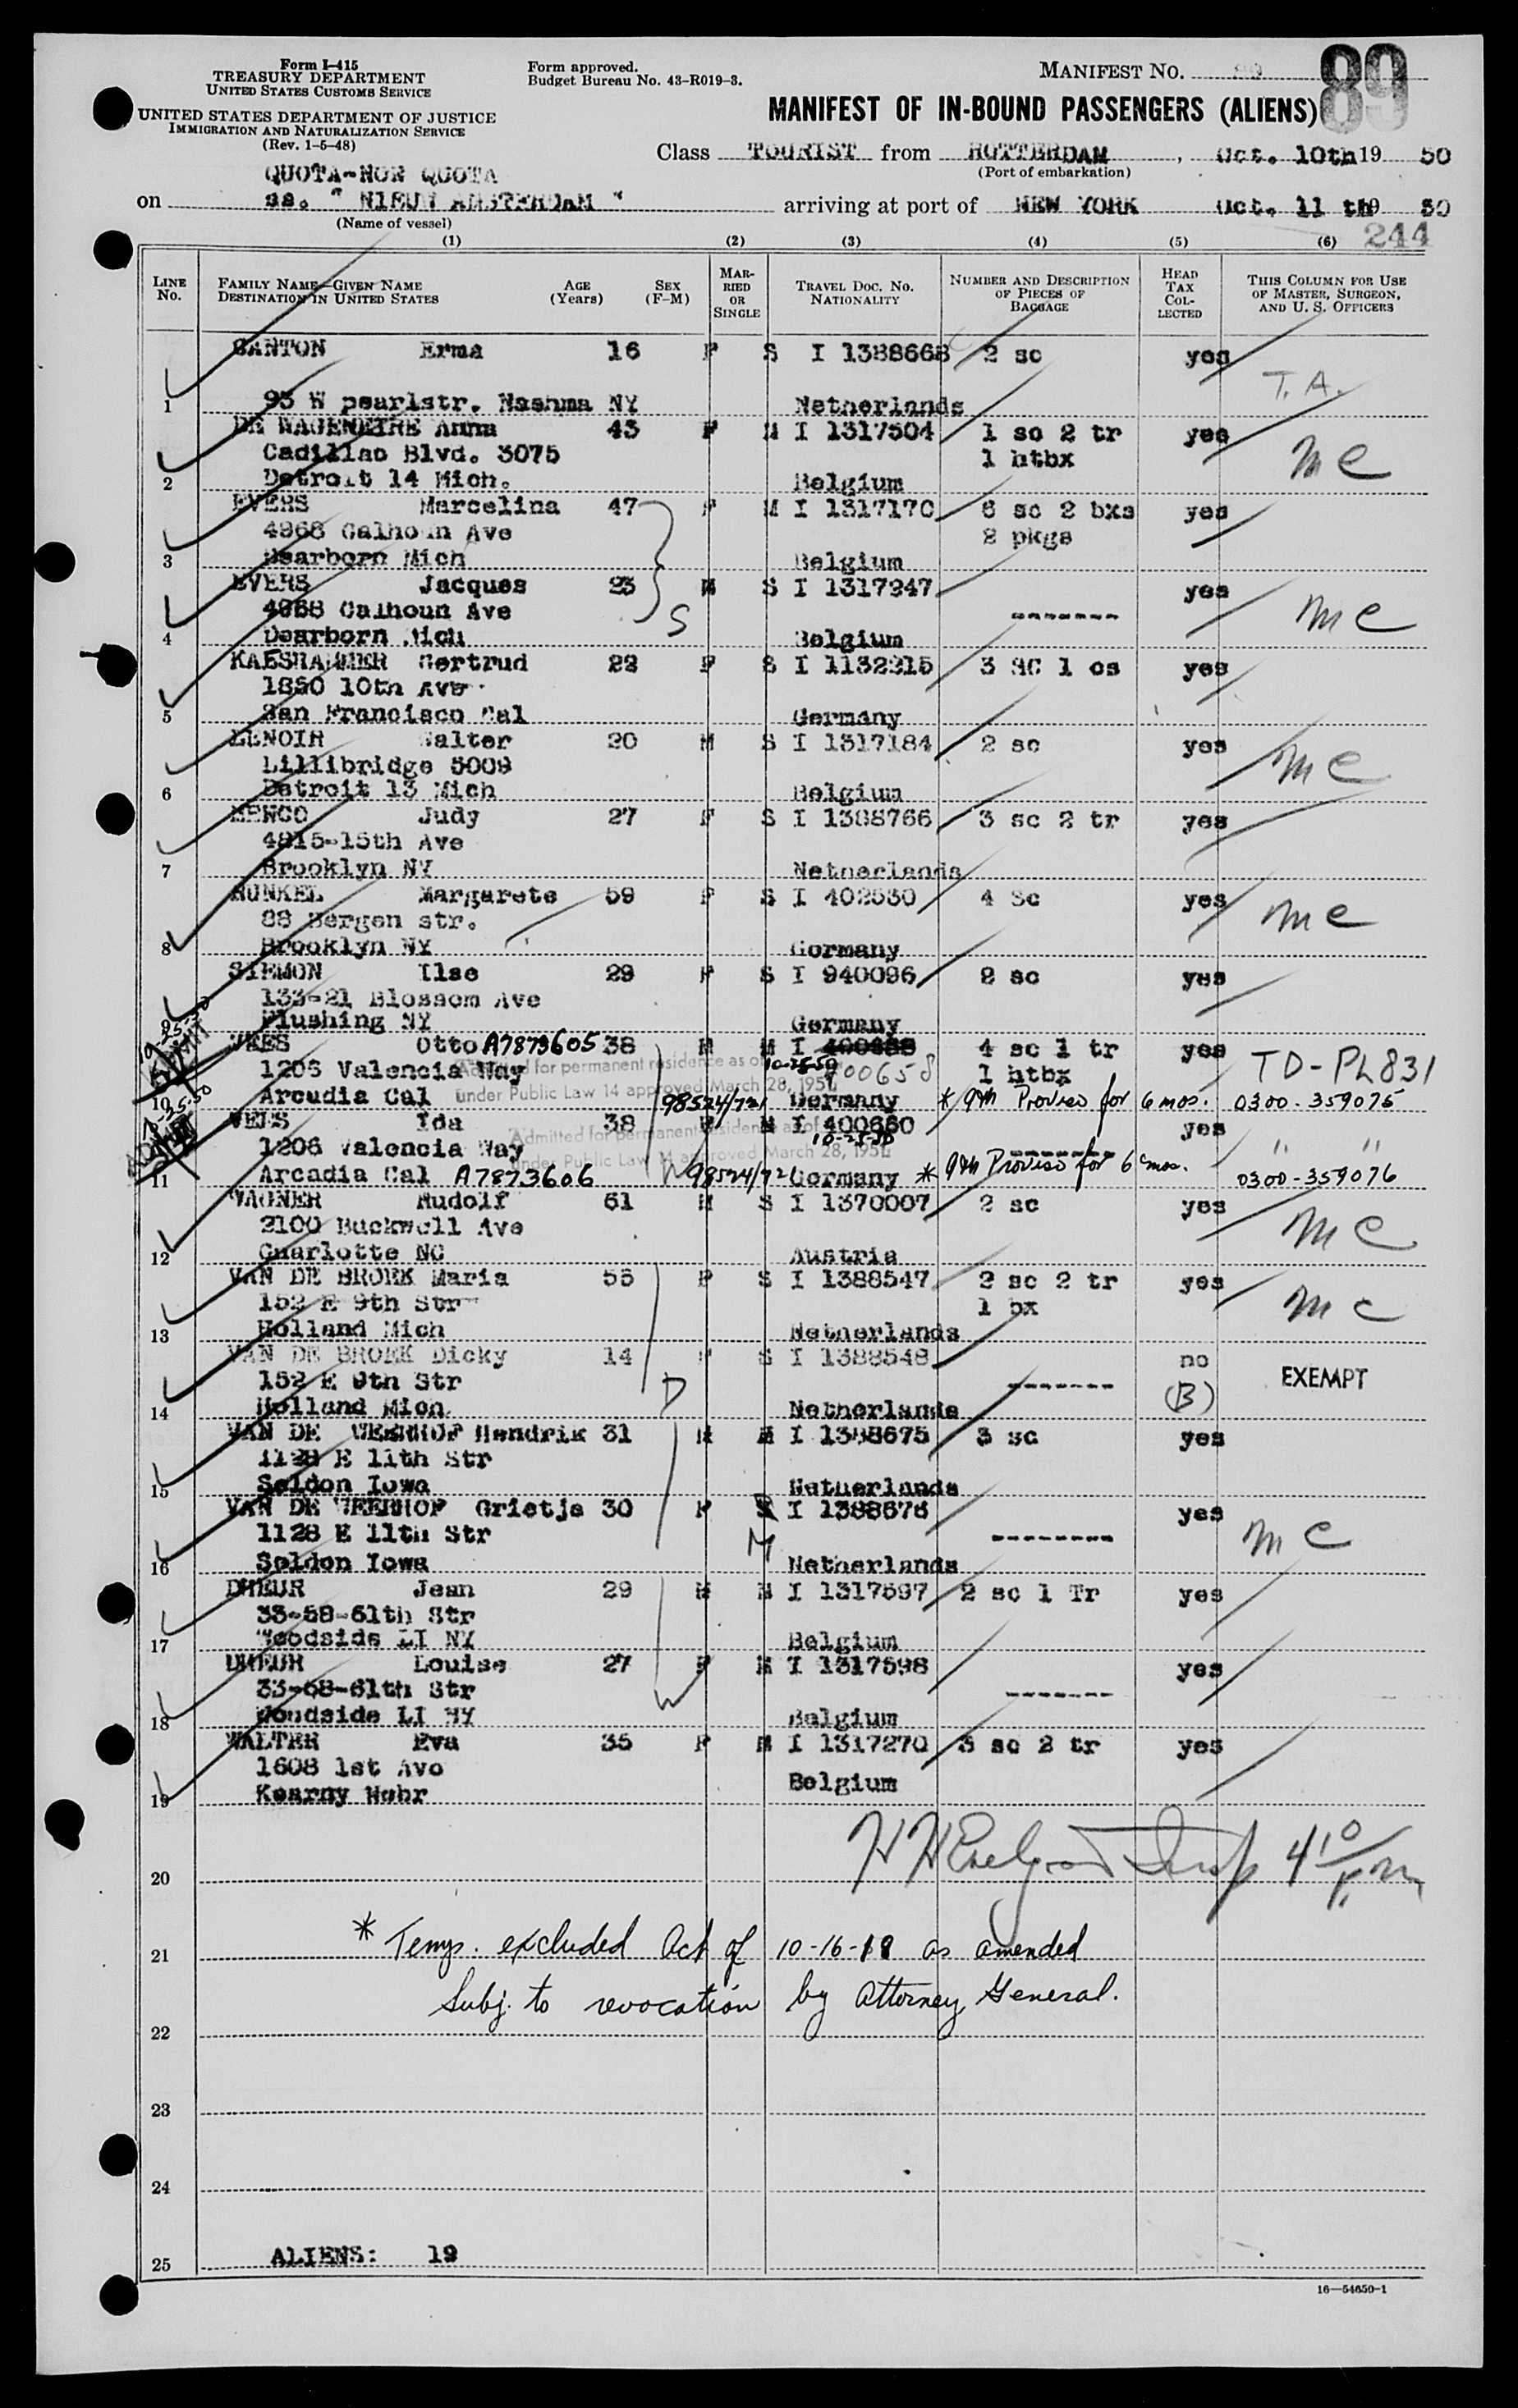 Form I-415
TREASURY DEPARTMENT
UNITED STATES CUSTOMS SERVICE
UNITED STATES DEPARTMENT OF JUSTICE
IMMIGRATION AND NATURALIZATION SERVICE
(Rev. 1-5-48)
Form approved.
Budget Bureau No. 43-R019-3.
MANIFEST NO. 89
89
MANIFEST OF IN-BOUND PASSENGERS (ALIENS)
Class TOURIST from ROTTERDAM, Oct. 10th 19 50
(Port of embarkation)
QUOTA-NON QUOTA
on ss. " NIEUW AMSTERDAM " arriving at port of NEW YORK Oct. 11 th 19 50
(Name of vessel)
244
(1) (2) (3) (4) (5) (6)
LINE NO. FAMILY NAME—GIVEN NAME DESTINATION IN UNITED STATES AGE (Years) SEX (F-M) MARRIED OR SINGLE TRAVEL DOC. NO. NATIONALITY NUMBER AND DESCRIPTION OF PIECES OF BAGGAGE HEAD TAX COLLECTED THIS COLUMN FOR USE OF MASTER, SURGEON, AND U. S. OFFICERS
Erma 16 F S I 1388668 2 sc yes
T. A.
1 95 W pearlstr. NY Netherlands
DE WAGENEIRE Anna 43 F M I 1317504 1 sc 2 tr yes
Cadillac Blvd. 3075 1 htbx
mc
2 Detroit 14 Mich. Belgium
EVERS Marcelina 47 F M I 1317170 6 sc 2 bxs yes
4968 Calhoun Ave 2 pkgs
3 Dearborn Mich Belgium
EVERS Jacques 23 M S I 1317247 ------- yes
4968 Calhoun Ave S mc
4 Dearborn Mich Belgium
KAESHAMMER Gertrud 22 F S I 1132215 3 sc 1 cs yes
1850 10th Ave
5 San Francisco Cal Germany
LENOIR Walter 20 M S I 1317184 2 sc yes
Lillibridge 5009 mc
6 Detroit 13 Mich Belgium
Judy 27 F S I 1388766 3 sc 2 tr yes
4815-15th Ave
7 Brooklyn NY Netherlands
RUNKEL Margarete 59 F S I 402530 4 sc yes
88 Bergen str. mc
8 Brooklyn NY Germany
SIEMON Ilse 29 F S I 940096 2 sc yes
133-21 Blossom Ave
Flushing NY Germany
ADMIT
Otto A7873605 38 M M I 4 sc 1 tr yes
400658
1206 Valencia Way 10-25-50 1 htbx TD-PL831
Admitted for permanent residence as of
under Public Law 14 approved March 28, 1951
10 Arcadia Cal 98524/721 Germany * 9th Proviso for 6 mos. 0300-359075
Ida 38 M I 400660 ------- yes
Admitted for permanent residence as of 10-25-50
1206 Valencia Way " "
under Public Law 14 approved March 28, 1951
11 Arcadia Cal A7873606 W 98524/721 Germany * 9th Proviso for 6 mos. 0300-359076
WAGNER Rudolf 61 M S I 1370007 2 sc yes
2100 Buckwell Ave mc
12 Charlotte NC Austria
VAN DE BROEK Maria 55 F S I 1388547 2 sc 2 tr yes
152 E 9th Str 1 bx mc
13 Holland Mich Netherlands
VAN DE BROEK Dicky 14 S I 1388548 ------- no
152 E 9th Str D (B) EXEMPT
14 Holland Mich Netherlands
VAN DE Hendrik 31 M M I 1388675 3 sc yes
1128 E 11th Str
15 Seldon Iowa Netherlands
VAN DE Grietje 30 F M I 1388676 ------- yes
1128 E 11th Str mc
16 Seldon Iowa Netherlands
DHEUR Jean 29 M M I 1317597 2 sc 1 Tr yes
33-58-61th Str
17 Woodside LI NY Belgium
DHEUR Louise 27 F M I 1317598 ------- yes
33-58-61th Str W
18 Woodside LI NY Belgium
WALTER Eva 35 F M I 1317270 3 sc 2 tr yes
1608 1st Ave
19 Kearny Nebr Belgium
20 Insp 4 10/p.m
21 * Temp. excluded Act of 10-16-18 as amended
Subj. to revocation by Attorney General.
22
23
24
25 ALIENS: 19
16—54650-1